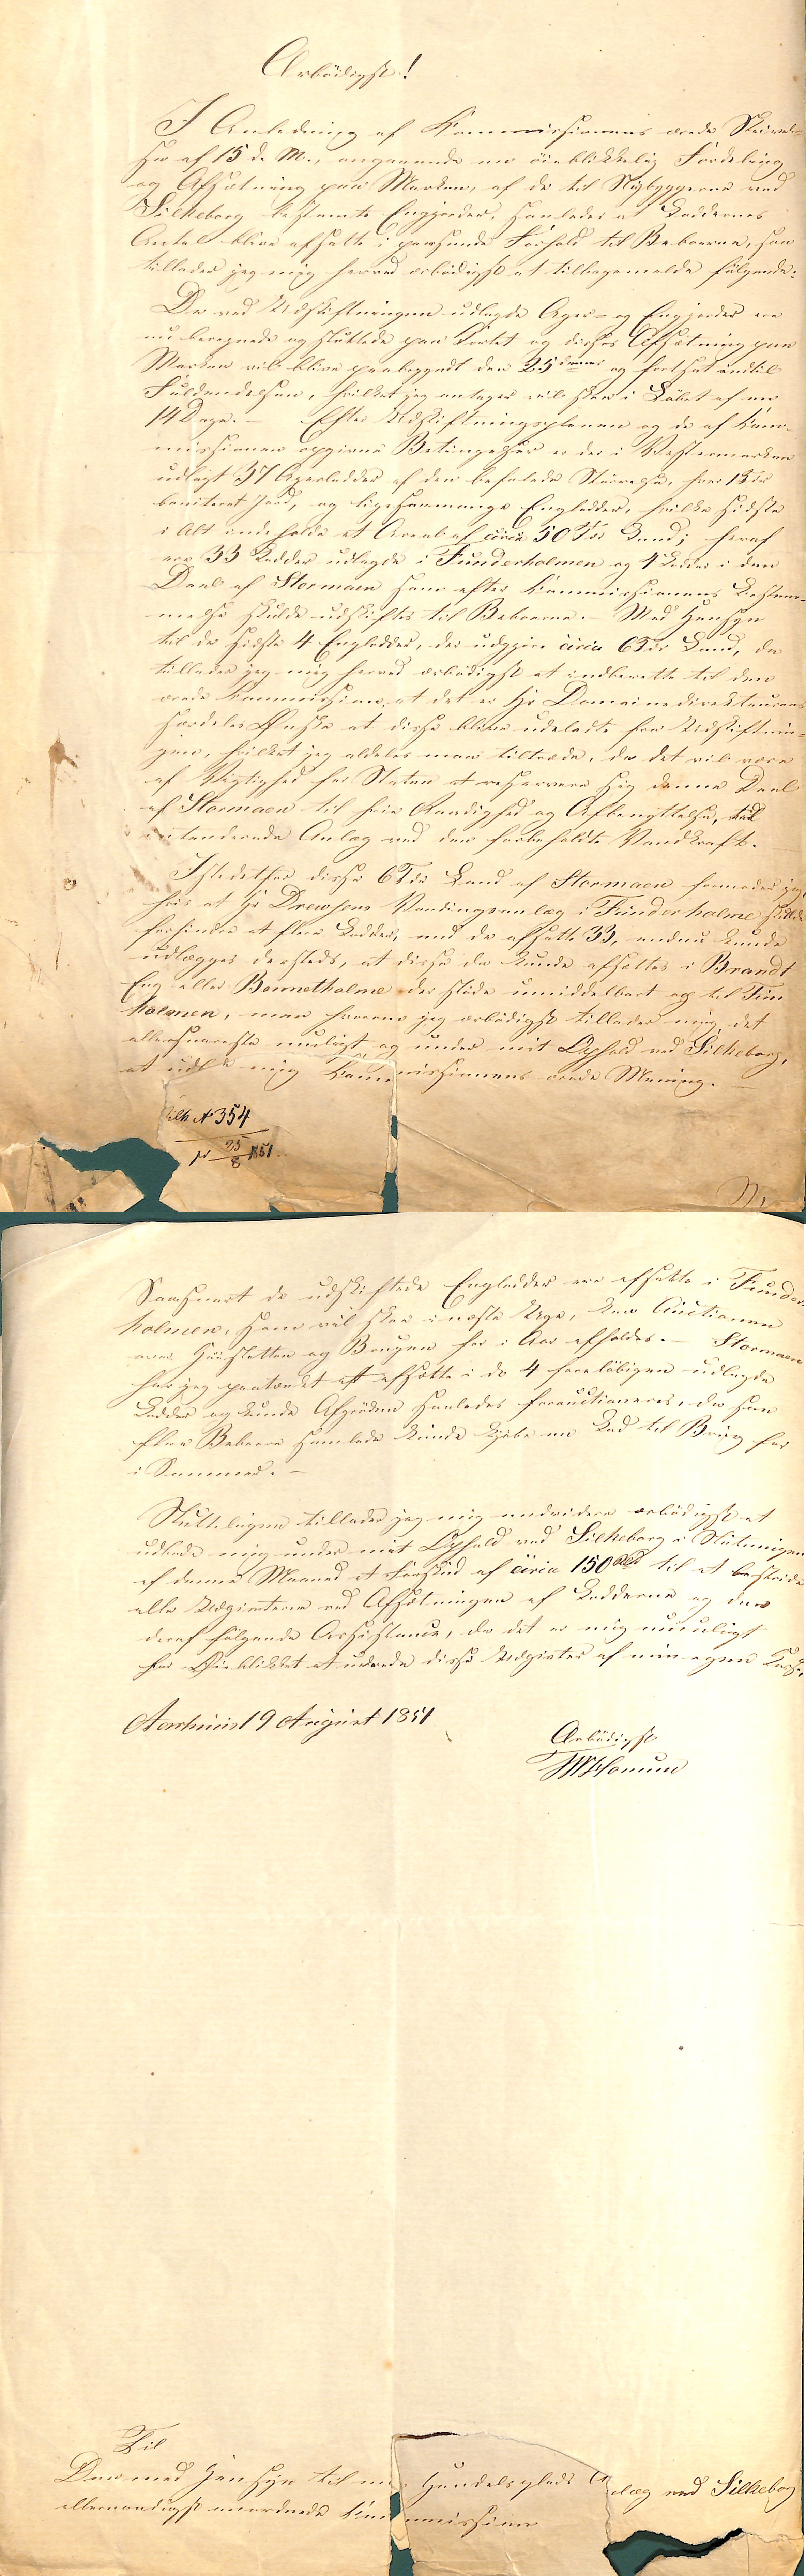 Ærbødigst!
I Anledning af Kommissionens ærede Skrivel-
se af 15 d. M., angaaende en øieblikkelig Fordeling
og Afsætning paa Marken, af de til Nybyggerne ved
Silkeborg bestemte Engjorder, saaledes at Loddernes
Antal blive afsatte i passende Forhold til Beboerne, saa
tillader jeg mig herved ærbødigst at tilbagemelde følgende:
De ved Udskiftningen udlagte Ager- og Engjorder ere
nu beregnede og sluttede paa Kortet og disses Afsætning paa
Marken vil blive paabegyndt den 25 dennes og fortsat indtil
Fuldendelsen, hvilket jeg antager vil skee i Løbet af en
14 Dage. – Efter Udskiftningsplanen og de af Kom-
missionen opgivne Betingelser er der i Vestermarken
udlagt 37 Agerlodder af den befalede Størrelse, hver 1 Td.
boniteret Jord, og ligesaamange Englodder, hvilke sidste
i Alt indeholde et Areal af circa 50 Tdr Land; heraf
ere 33 Lodder udlagte i Funderholmen og 4 Lodder i den
Deel af Stormaen som efter Kommissionens Bestem-
melse skulde udskiftes til Beboerne. – Med Hensyn
til de sidste 4 Englodder, der udgjøre circa 6 Tdr Land, da
tillader jeg mig herved ærbødigst at indberette til den
ærede Kommission, at det er Hr Domainedirekteurens
særdeles Ønske at disse blive udeladte fra Udskiftnin-
gen, hvilket jeg aldeles maa tiltræde, da det vil være
af Vigtighed for Staten at reservere sig denne Deel
af Stormaen til frie Raadighed og Afbenyttelse, ved
intenderede Anlæg ved den forbeholdte Vandkraft.
Istedetfor disse 6 Tdr Land af Stormaen formeder jeg,
hvis at Hr Drewsens Vandingsanlæg i Funderholme skulde
forhindre at flere Lodder, end de afsatte 33, endnu kunde
udlægges dersteds, at disse da kunde afsættes i Brandt
Eng eller Bennetholme der støde umiddelbart op til Fun
holmen, men hvorom jeg ærbødigst tillader mig, det
allersnareste muligt og under mit Ophold ved Silkeborg,
at udb mig Kommissionens ærede Mening. –
Silk No 354
pr 25/8 1851.
Saasnart de udskiftede Englodder ere afsatte i Funder-
holmen, som vil skee i næste Uge, kan Auctionen
over Høisletten og Brugen for i Aar afholdes. – Stormaen
har jeg paatænkt at afsætte i de 4 foreløbigen udlagte
Lodder og kunde Afgrøden saaledes forauctioneres, da saa
flere Beboere samlede kunde kjøbe en Lod til Brug for
i Sommer. –
Slutteligen tillader jeg mig endvidere ærbødigst at
udbede mig under mit Ophold ved Silkeborg i Slutningen
af denne Maaned et Forskud af circa 150 Rbd til at bestride
alle Udgifterne ved Afsætningen af Lodderne og den
deraf følgende Assistance, da det er mig umuligt
for Øieblikket at udrede disse Udgifter af min egen Kasse.
Aarhuus 19 August 1851
Ærbødigst
Til
Den med Hensyn til en Handelsplads Anlæg ved Silkeborg
allernaadigst anordnede Kommission